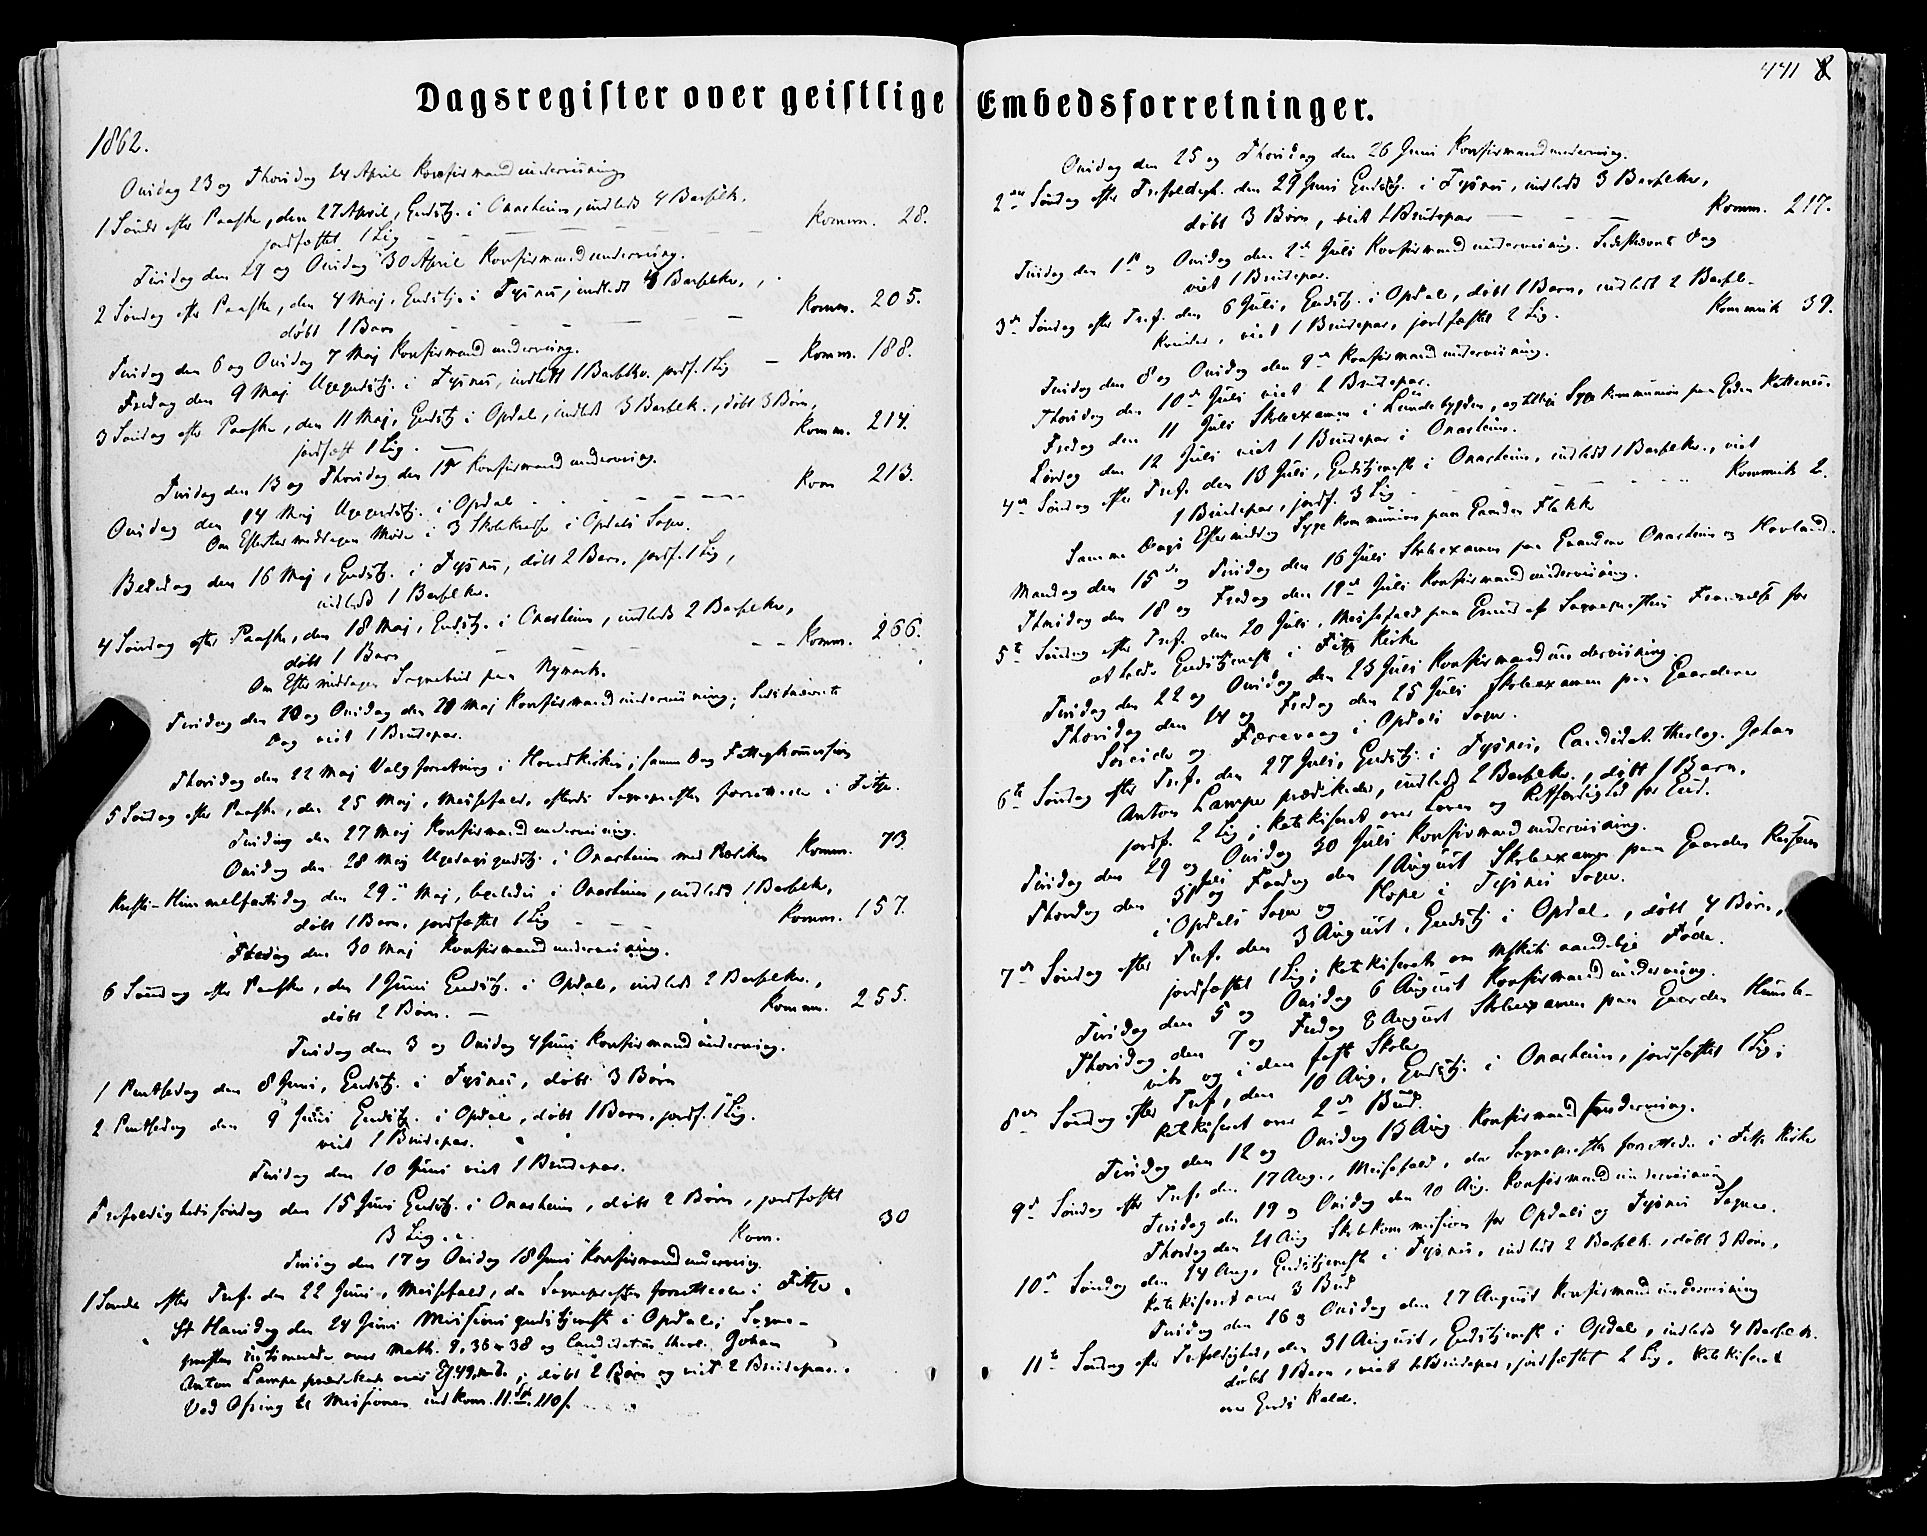 Dagsregister over geistlige Embedsforretninger.
441 8
1862.
Onsdag 23 og Thorsdag 24 April Konfirmandundervisning
1 Sønd. efter Paaske, den 27 April, Gudstj. i Onarheim, indledt 4 Barselk.
jordfæstet 1 Lig Komm. 28.
Tirsdag den 29 og Onsdag 30 April Konfirmandundervisning.
2 Søndag efter Paaske, den 4 Maj, Gudstj. i Tysnes, indledt 4 Barselkv.,
døbt 1 Barn Komm. 205.
Tirsdag den 6 og Onsdag 7 Maj Konfirmandundervisning.
Fredag den 9 Maj Ugegudstj. i Tysnes, indledt 1 Barselkv. jordf. 1 Lig — Komm. 188.
3 Søndag efter Paaske, den 11 Maj, Gudstj. i Opdal, indledt 3 Barselk., døbt 3 Børn,
jordfæst 1 Lig. Komm. 214.
Tirsdag den 13 og Thorsdag den 15 Konfirmandundervisning.
Onsdag den 14 Maj Ugegudstj. i Opdal Kom 213.
Om Eftermiddagen Møde i 3 Skolekredse i Opdals Sogn.
Bededag den 16 Maj, Gudstj. i Tysnes, døbt 2 Børn, jordf. 1 Lig,
indledt 1 Barselkv.
4 Søndag efter Paaske, den 18 Maj, Gudstj. i Onarheim, indledt 2 Barselkv,
døbt 1 Barn Komm. 266.
Om Eftermiddagen Sognebud paa Nymark.
Tirsdag den 20 og Onsdag den 21 Maj Konfirmandundervisning; Sidstnævnte
Dag viet 1 Brudepar.
Thorsdag den 22 Maj Valgforretning i Hovedkirken; samme Dag Fattigkommission
5 Søndag efter Paaske, den 25 Maj, Messefald, efterdi Sognepresten forrettede i Fitje.
Tirsdag den 27 Maj Konfirmandundervisning.
Onsdag den 28 Maj Ugedagsgudstj. i Onarheim med Præken Komm. 73
Kristi-Himmelfartsdag den 29de Maj, ligeledes i Onarheim, indledt 1 Barselkv,
døbt 1 Barn, jordfæstet 1 Lig Komm. 157.
Fredag den 30 Maj Konfirmandundervisning.
6 Søndag efter Paaske, den 1 Juni Gudstj. i Opdal, indledt 2 Barselkv.,
døbt 2 Børn. — Komm. 255.
Tirsdag den 3 og Onsdag 4 Juni Konfirmandundervisning.
1 Pintsedag den 8 Juni, Gudstj. i Tysnes, døbt 3 Børn
2 Pintsedag den 9 Juni Gudstj. i Opdal, døbt 1 Barn, jordf. 1 Lig.
viet 1 Brudepar.
Tirsdag den 10 Juni viet 1 Brudepar.
Trefoldighedssøndag den 15 Juni Gudstj. i Onarheim, døbt 2 Børn, jordfæstet
3 Lig. Kom. 30
Tirsdag den 17 og Onsdag 18 Juni Konfirmandundervisning
1 Sønd. efter Tref. den 22 Juni, Messefald, da Sognepresten forrettede i Fitje.
St Hansdag den 24 Juni Missionsgudstjeneste i Opdal; Sogne-
presten over Math. 9, 36-38 og Candidatus theol. Johan
Anton Lampe prædikede over; døbt 2 Børn og viet 2 Brudepar.
Ved Ofring til Missionen indkom. 11 Spd. 110 s.
Onsdag den 25 og Thorsdag den 26 Juni Konfirmandundervisning.
2den Søndag efter Trefoldigh. den 29 Juni Gudstj. i Tysnes, indledt 3 Barselkv,
døbt 3 Børn, viet 1 Brudepar Komm. 217.
Tirsdag den 1ste og Onsdag den 2den Juli Konfirmandundervisning. Sidstnævnte Dag
viet 1 Brudepar.
3die Søndag efter Tref. den 6 Juli, Gudstj. i Opdal, døbt 1 Barn, indledt 2 Barsel-
kvinder, viet 1 Brudepar, jordfæstet 2 Lig. Kommunik 39.
Tirsdag den 8 og Onsdag den 9de Konfirmandundervisning.
Thorsdag den 10de Juli viet 2 Brudepar.
Fredag den 11 Juli Skoleexamen i Lundebygden, og tillige Sygekommunion paa Gden
Lørdag den 12 Juli viet 1 Brudepar i Onarheim.
4de Søndag efter Tref. den 13 Juli, Gudstjeneste i Onarheim, indledt 1 Barselkv., viet
1 Brudepar, jordf. 3 Lig Kommunik 2.
Samme Dags Eftermiddag Sygekommunion paa Gaarden Flakke
Mandag den 15de og Tirsdag den 16 Juli Skoleexamen paa Gaardene Onarheim og Hovland.
Thorsdag den 18 og Fredag den 19de Juli Konfirmandundervisning.
5te Søndag efter Tref. den 20 Juli, Messefald paa Grund af Sognepresten for
at holde Gudstjeneste i Fitje Kirke
Tirsdag den 22 og Onsdag den 23 Juli Konfirmandundervisning.
Thorsdag den 24 og Fredag den 25 Juli Skoleexamen paa Gaardene
og Færevaag i Opdals Sogn.
6te Søndag efter Tref. den 27 Juli, Gudstj. i Tysnes, Candidat. theolog. Johan
Anton Lampe prædikede, indledt 2 Barselkv., døbt 1 Barn,
jordf. 2 Lig; katekiseret over Loven og Retfærdighed for Gud.
Tirsdag den 29 og Onsdag 30 Juli Konfirmandundervisning.
Thorsdag den 31 Juli og Fredag den 1 August Skoleexamen paa Gaarden
i Opdals Sogn og Hope i Tysnes Sogn.
7de Søndag efter Tref. den 3 August, Gudstj. i Opdal, døbt 4 Børn,
jordfæstet 1 Lig; katekiseret om aandelige Føde.
Tirsdag den 5 og Onsdag 6 August Konfirmandundervisning.
Thorsdag den 7 og Fredag 8 August Skoleexamen paa Gaarden Humle-
vik og i den faste Skole
8de Søndag efter Tref, den 10 Aug, Gudstj. i Onarheim, jordfæstet 1 Lig;
katekiseret over 2det Bud.
Tirsdag den 12 og Onsdag 13 Aug Konfirmandundervisning.
9de Søndag efter Tref. den 17 Aug., Messefald, da Sognepresten forrettede i Fitje Kirke
Tirsdag den 19 og Onsdag den 20 Aug. Konfirmandundervisning
Thorsdag den 21 Aug Skolekommission for Opdals og Tysnes Sogne.
10de Søndag den 24 Aug. Gudstjeneste i Tysnes, indledt 2 Barselk., døbt 3 Børn,
katekiseret over 3 Bud
Tirsdag den 26 og Onsdag den 27 August Konfirmandundervisning
11te Søndag efter Trefoldighed, den 31 August, Gudstjeneste i Opdal, indledt 4 Barselk.
døbt 1 Barn, viet 1 Brudepar, jordfæstet 2 Lig, katekiseret
over Guds Kald.